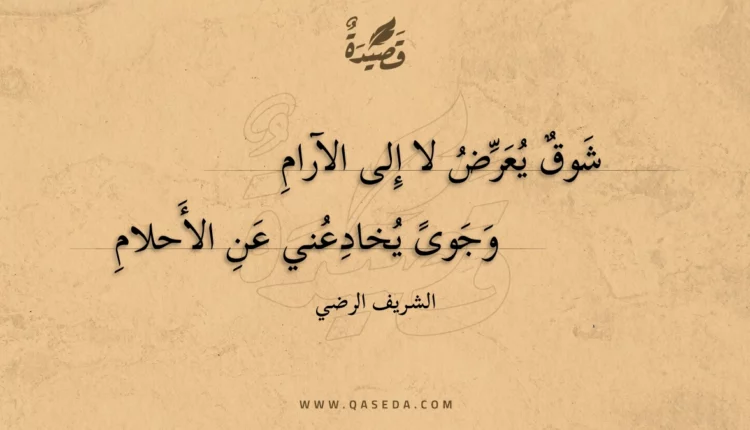 قَصِيدَةٌ
شَوقٌ يُعَرِّضُ لا إِلى الآرامِ
وَجَوىً يُخادِعُني عَنِ الأَحلامِ
الشريف الرضي
WWW.QASEDA.COM